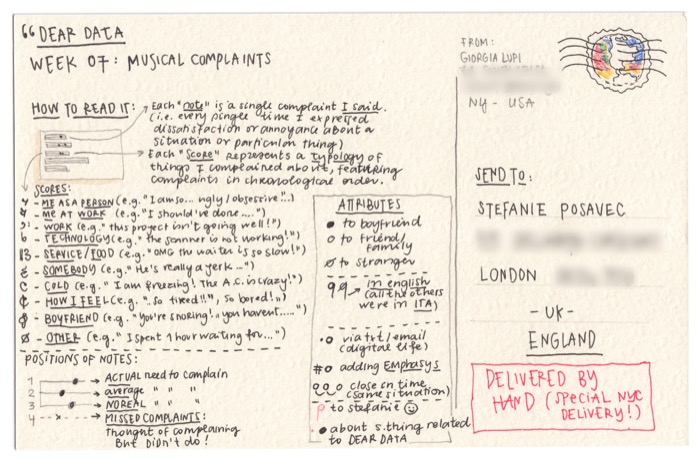 DEAR DATA
WEEK 07: MUSICAL COMPLAINTS
HOW TO READ IT:
Each "note" is a single complaint I said.
(i.e. every single time I expressed
dissatisfaction or annoyance about a
situation or particular thing)
Each "Score" represents a typology of
things I complained about, featuring
complaints in chronological order.
SCORES:
ME AS A PERSON (e.g. "I am so... ugly/obsessive"..)
ME AT WORK (e.g. "I should've done....")
WORK (e.g. "this project isn't going well!!")
TECHNOLOGY (e.g. "the scanner is not working!")
SERVICE/FOOD (e.g. "OMG the waiter is so slow!")
SOMEBODY (e.g. "He's really a jerk...")
COLD (e.g. "I am freezing! The A.C. is crazy!")
HOW I FEEL (e.g. "..so tired!!", so bored!..)
BOYFRIEND (e.g. "You're snoring!, you haven't.....")
OTHER (e.g. "I spent 1 hour waiting for...")
POSITIONS OF NOTES:
1 → ACTUAL need to complain
2 → average " " "
3 → NO REAL " " "
4 - x - → MISSED COMPLAINTS:
Thought of complaining
But DIDN'T do!
ATTRIBUTES
to boyfriend
to friend/
family
to stranger
in english
(all the others
were in ITA)
via txt/email
(digital life)
#o adding EMPHASYS
close in time
(same situation)
to stefanie ☺
about s.thing related
to DEAR DATA
FROM:
GIORGIA LUPI
NY - USA
SEND TO:
STEFANIE POSAVEC
LONDON
- UK -
ENGLAND
DELIVERED BY
HAND (SPECIAL NYC
DELIVERY!)